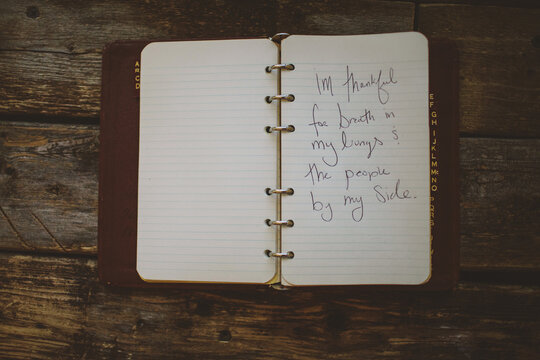 A
B
C
D
Im thankful
for breath in
my lungs &
the people
by my side.
EF
G
H
I
J
K
L
M
Mc
N
O